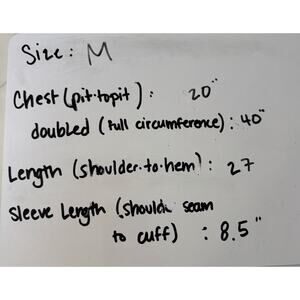 Size: M
Chest (pit-to-pit): 20"
doubled (full circumference): 40"
Length (shoulder-to-hem): 27
Sleeve Length (should. seam
to cuff) : 8.5"